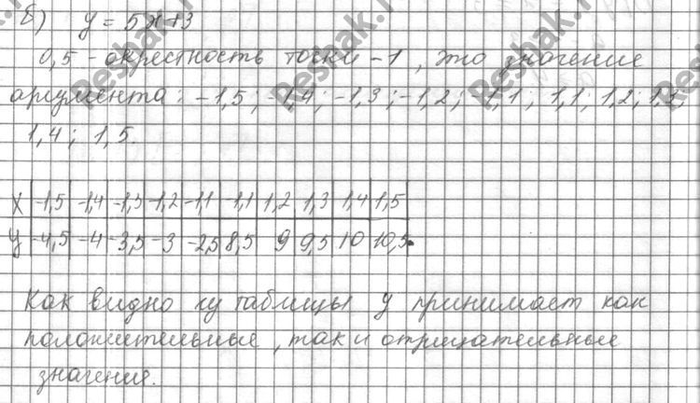 б) y = 5x+3
0,5 - окрестность точки -1, это значение
аргумента: -1,5; -1,4; -1,3; -1,2; -1,1, 1,1; 1,2; 1,3
1,4; 1,5.
x | -1,5 | -1,4 | -1,3 | -1,2 | -1,1 | 1,1 | 1,2 | 1,3 | 1,4 | 1,5
y | -4,5 | -4 | -3,5 | -3 | -2,5 | 8,5 | 9 | 9,5 | 10 | 10,5
Как видно из таблицы y принимает как
положительные, так и отрицательные
значения.
Reshak.ru
Reshak.ru
Reshak.ru